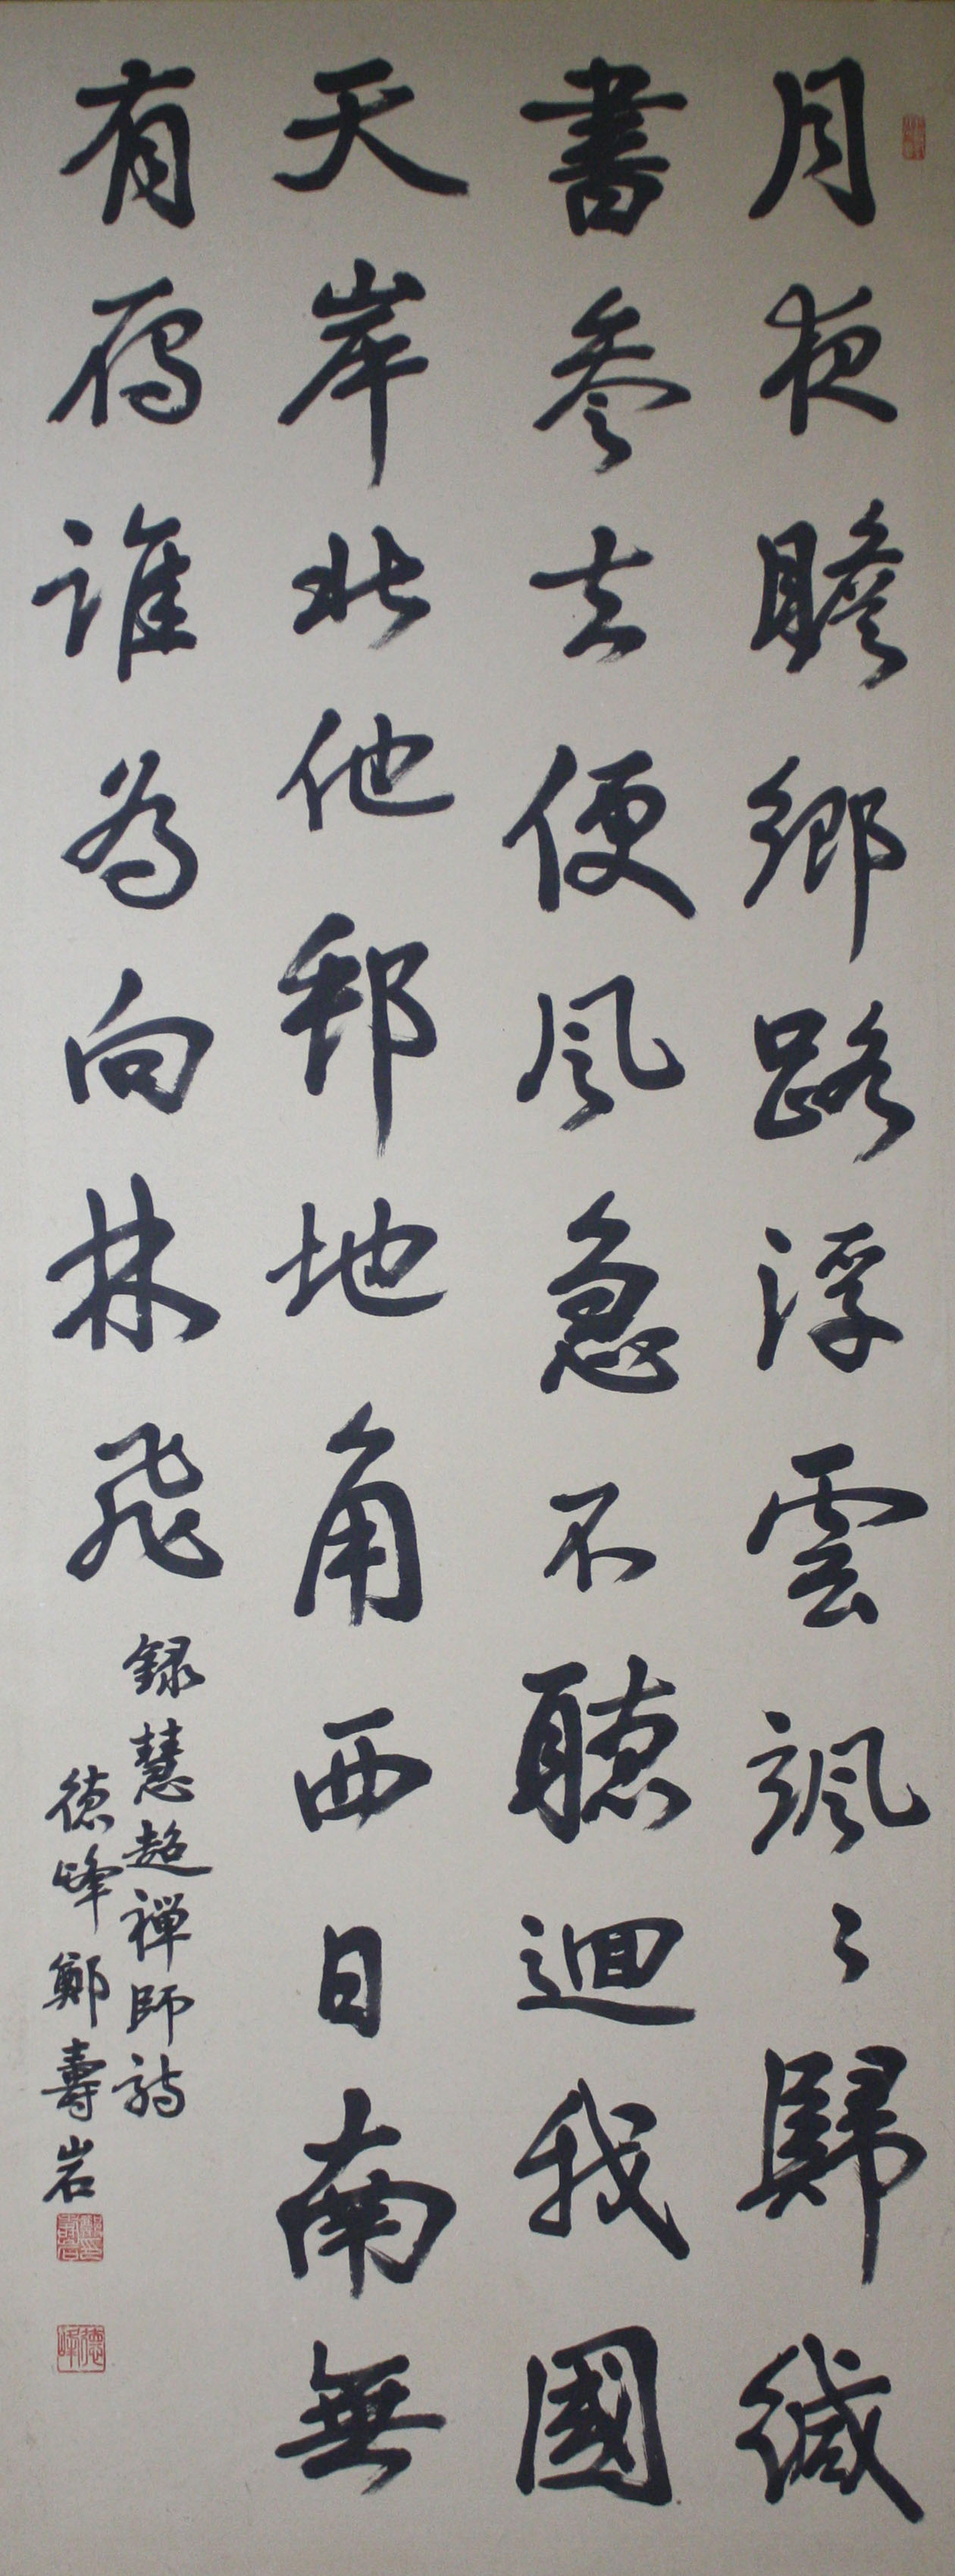 月夜瞻鄉路浮雲颯々歸緘
書参去便風急不聴迴我國
天岸北他邦地角西日南無
有鴈誰為向林飛
録慧超禅師詩
徳峰鄭壽岩